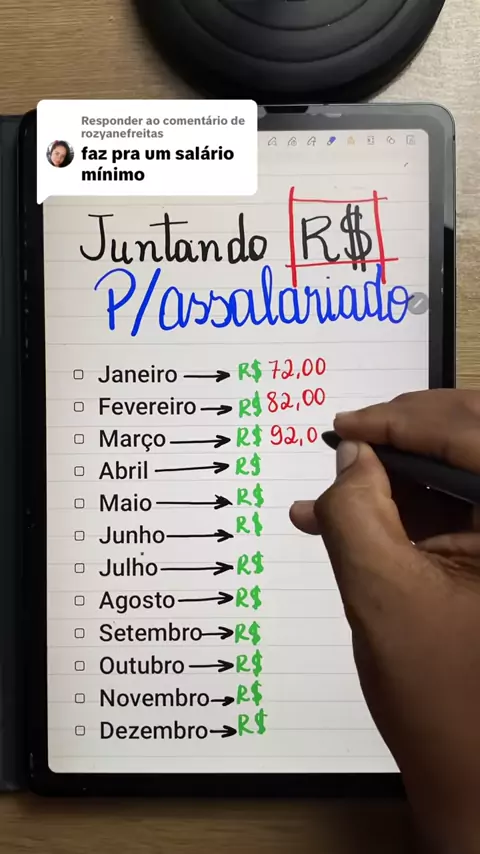 Responder ao comentário de
rozyanefreitas
faz pra um salário
mínimo
Juntando R$
P/assalariado
Janeiro → R$ 72,00
Fevereiro → R$ 82,00
Março → R$ 92,0
Abril → R$
Maio → R$
Junho → R$
Julho → R$
Agosto → R$
Setembro → R$
Outubro → R$
Novembro → R$
Dezembro → R$